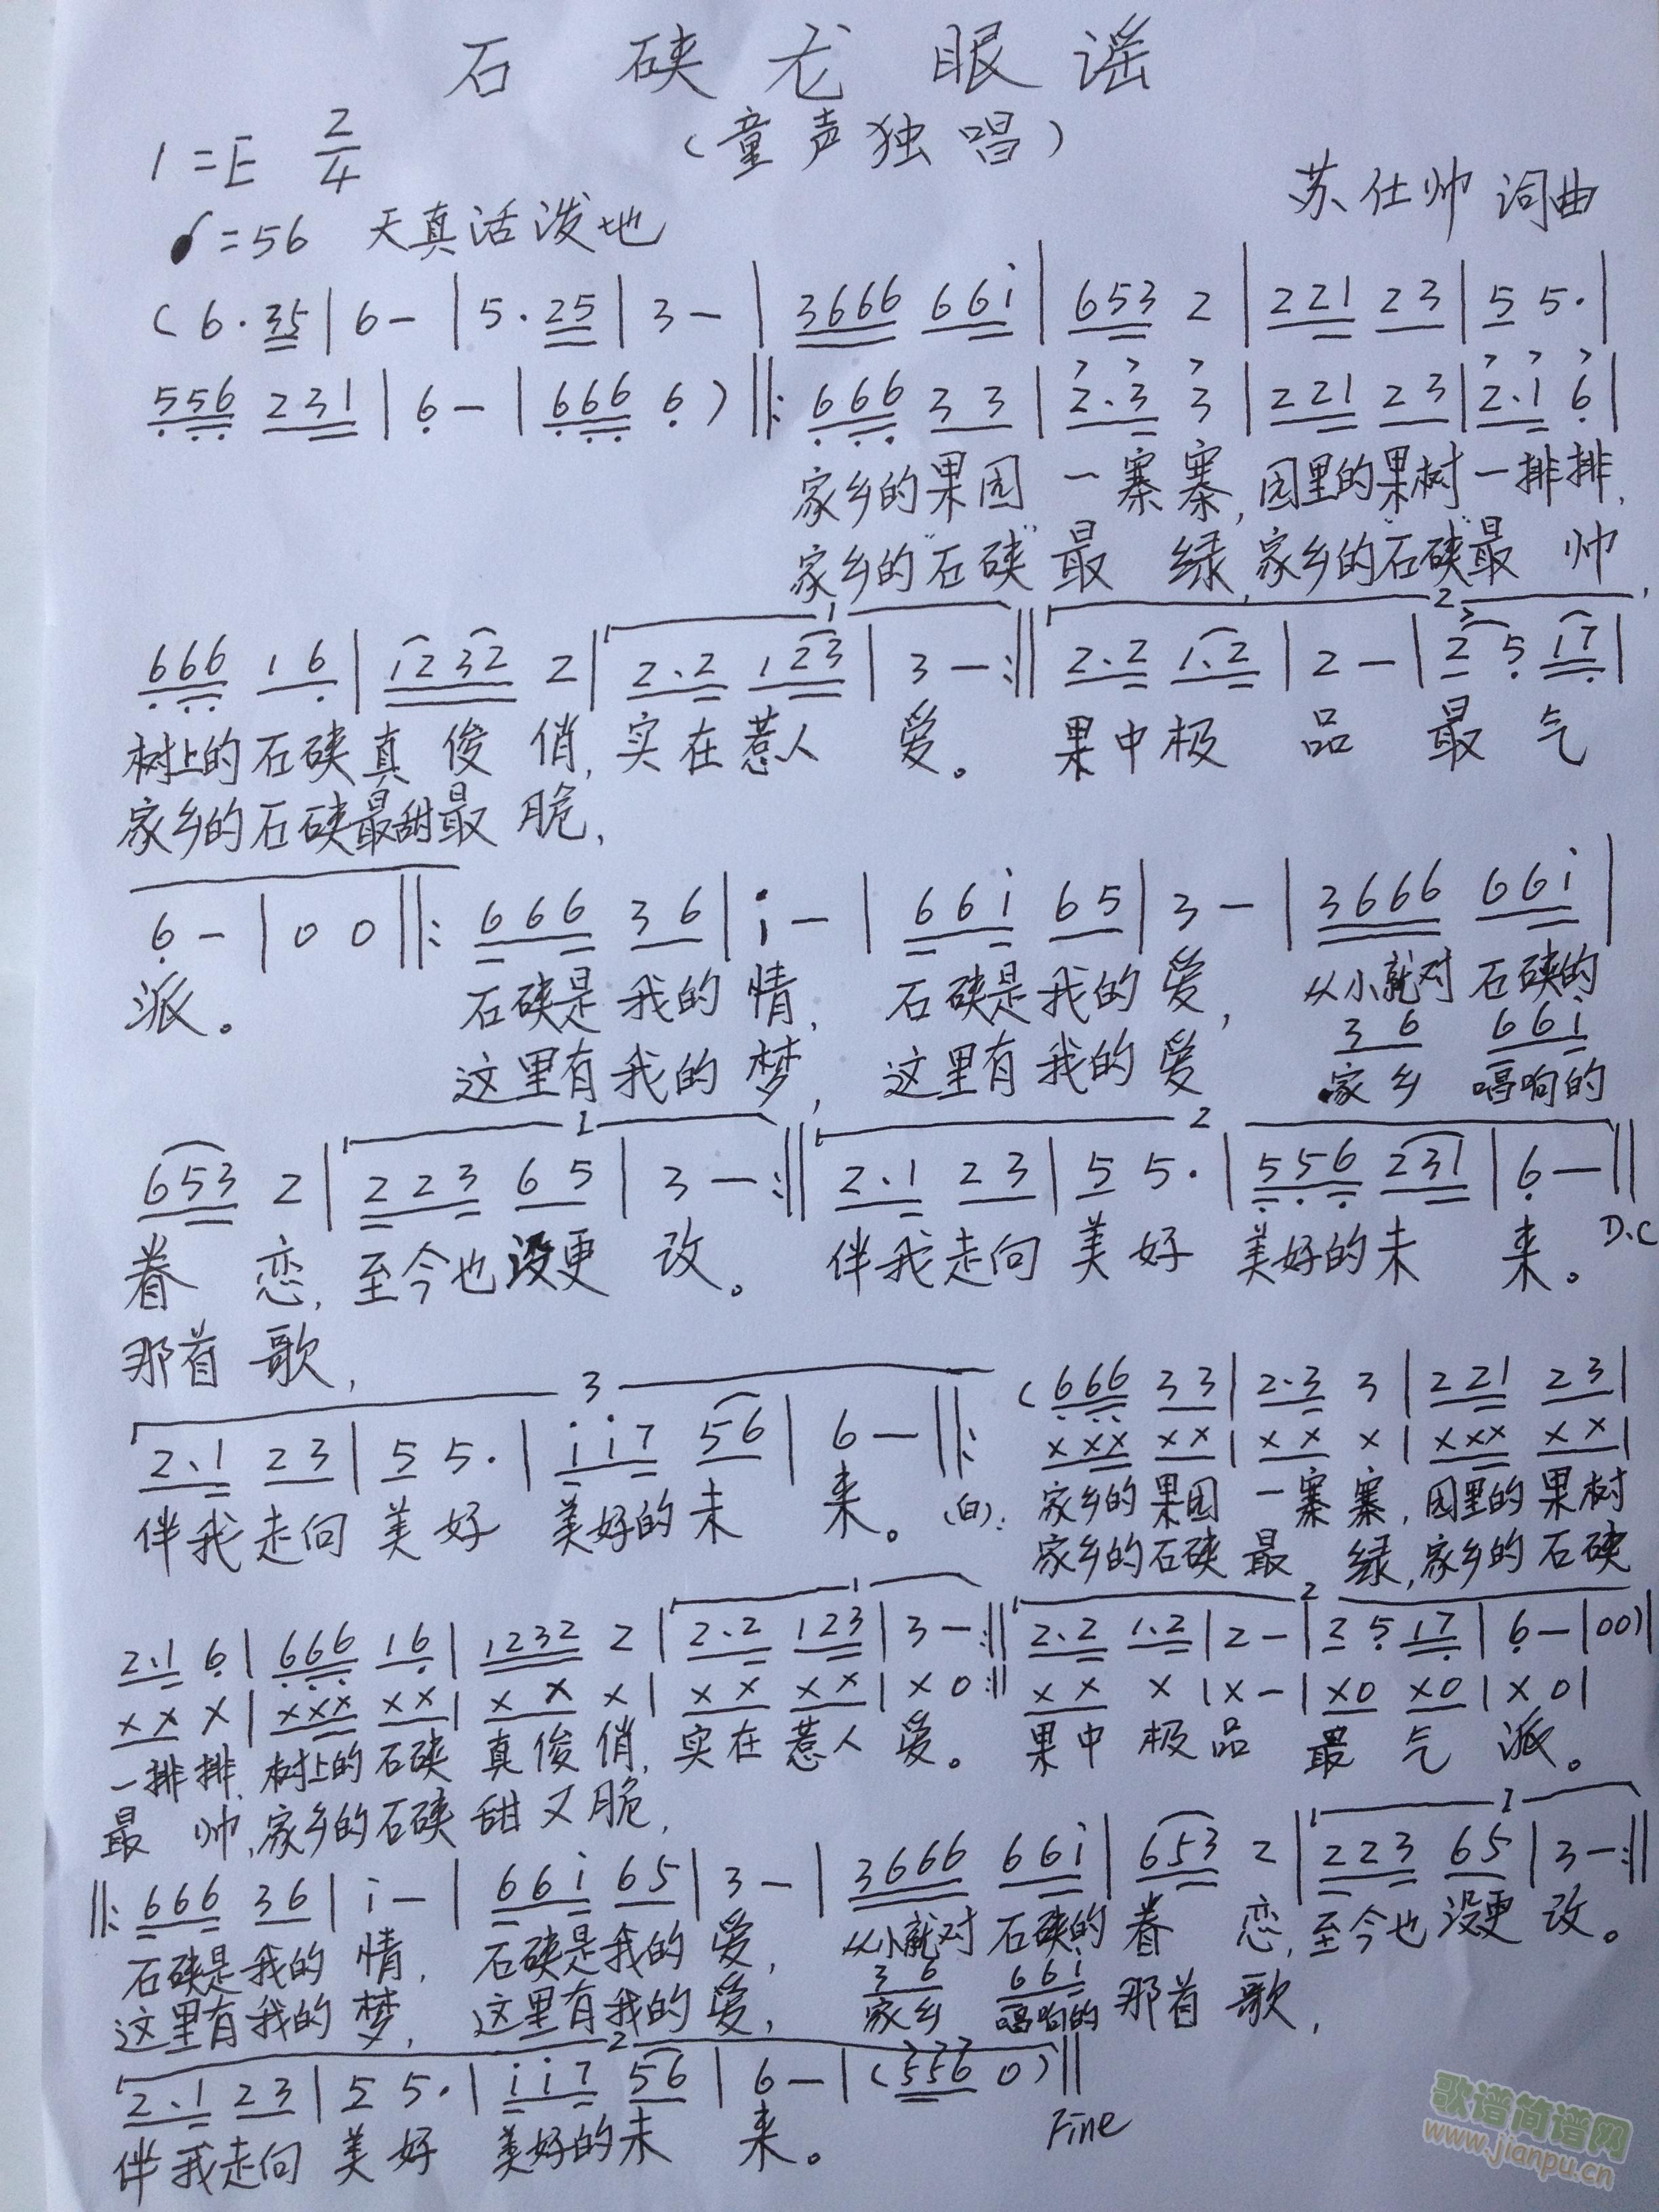 石硖龙眼谣
1=E 2/4 (童声独唱)
苏仕帅 词曲
♩=56 天真活泼地
(6·35|6-|5·25|3-|3666 66i|653 2|221 23|5 5·|
556 231|6-|666 6)‖:666 33|2·3 3|221 23|2·1 6|
家乡的果园 一寨寨,园里的果树一排排,
家乡的"石硖"最 绿,家乡的"石硖"最 帅,
1 2
666 16|1232 2|2·2 123|3-:‖2·2 1·2|2-|2 5 17|
树上的石硖真俊俏,实在惹人 爱。 果中极 品 最气
家乡的石硖最甜最 脆,
6-|00‖:666 36|i-|66i 65|3-|3666 66i|
派。 石硖是我的情, 石硖是我的爱, 从小就对石硖的
36 66i
这里有我的梦, 这里有我的爱 家乡 唱响的
1 2
653 2|223 65|3-:‖2·1 23|5 5·|556 231|6-‖
D.C
眷 恋,至今也没更 改。 伴我走向 美好 美好的未 来。
那首 歌,
3
(666 33|2·3 3|221 23|
2·1 23|5 5·|ii7 56|6-‖: xxx xx|xx x|xxx xx|
伴我走向 美好 美好的未 来。(白): 家乡的果园 一寨寨,园里的果树
家乡的石硖 最 绿,家乡的石硖
1 2
2·1 6|666 16|1232 2|2·2 123|3-:‖2·2 1·2|2-|2 5 17|6-|00)|
xx x|xxx xx|xx x|xx xx|x0:‖xx x|x-|x0 x0|x0|
一排排,树上的石硖 真俊俏,实在惹人 爱。 果中 极品 最气 派。
最 帅,家乡的石硖 甜又脆,
1
‖:666 36|i-|66i 65|3-|3666 66i|653 2|223 65|3-:‖
石硖是我的 情, 石硖是我的 爱, 从小就对 石硖的 眷 恋,至今也没更 改。
36 66i
这里有我的 梦, 这里有我的爱, 家乡 唱响的 那首 歌,
2
2·1 23|5 5·|ii7 56|6-|(556 0)‖
Fine
伴我走向 美好 美好的未 来。
歌谱简谱网
www.jianpu.cn